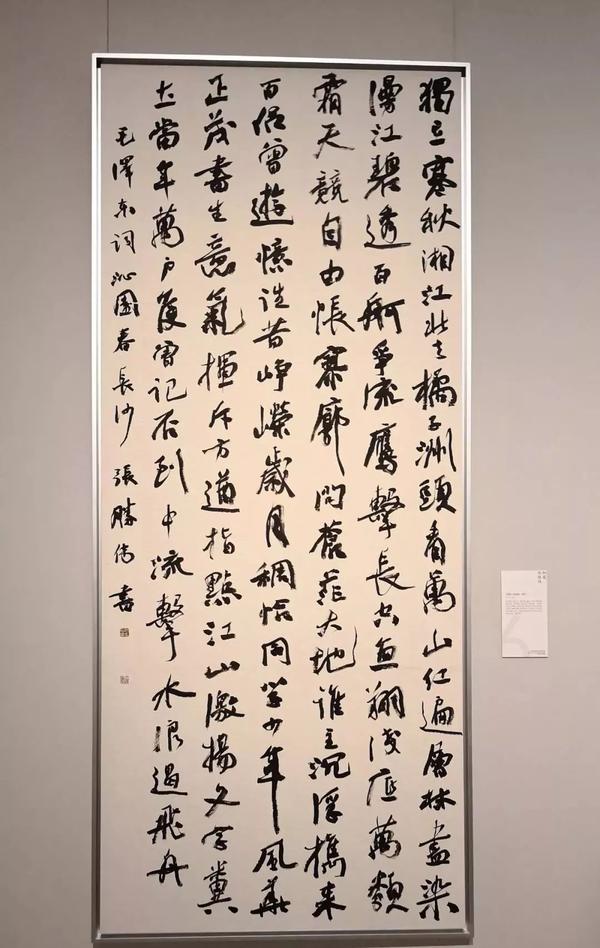 獨立寒秋湘江北去橘子洲頭看萬山紅遍層林盡染
漫江碧透百舸爭流鷹擊長空魚翔淺底萬類
霜天競自由悵寥廓問蒼茫大地誰主沉浮攜來
百侶曾遊憶往昔崢嶸歲月稠恰同學少年風華
正茂書生意氣揮斥方遒指點江山激揚文字糞
土當年萬戶侯曾記否到中流擊水浪遏飛舟
毛澤東詞沁園春長沙 張勝偉書